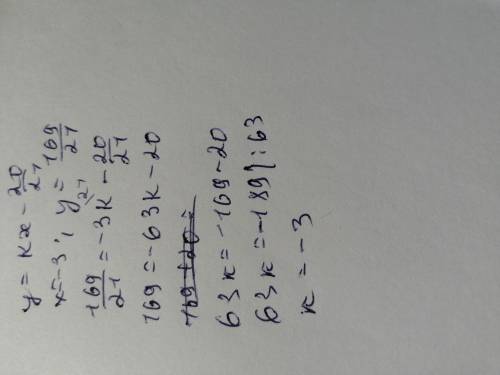 y = kx - 20/21
x = -3 ; y = 169/21
169/21 = -3k - 20/21
169 = -63k - 20
169 + 20 =
63k = -169 - 20
63k = -189 | : 63
k = -3